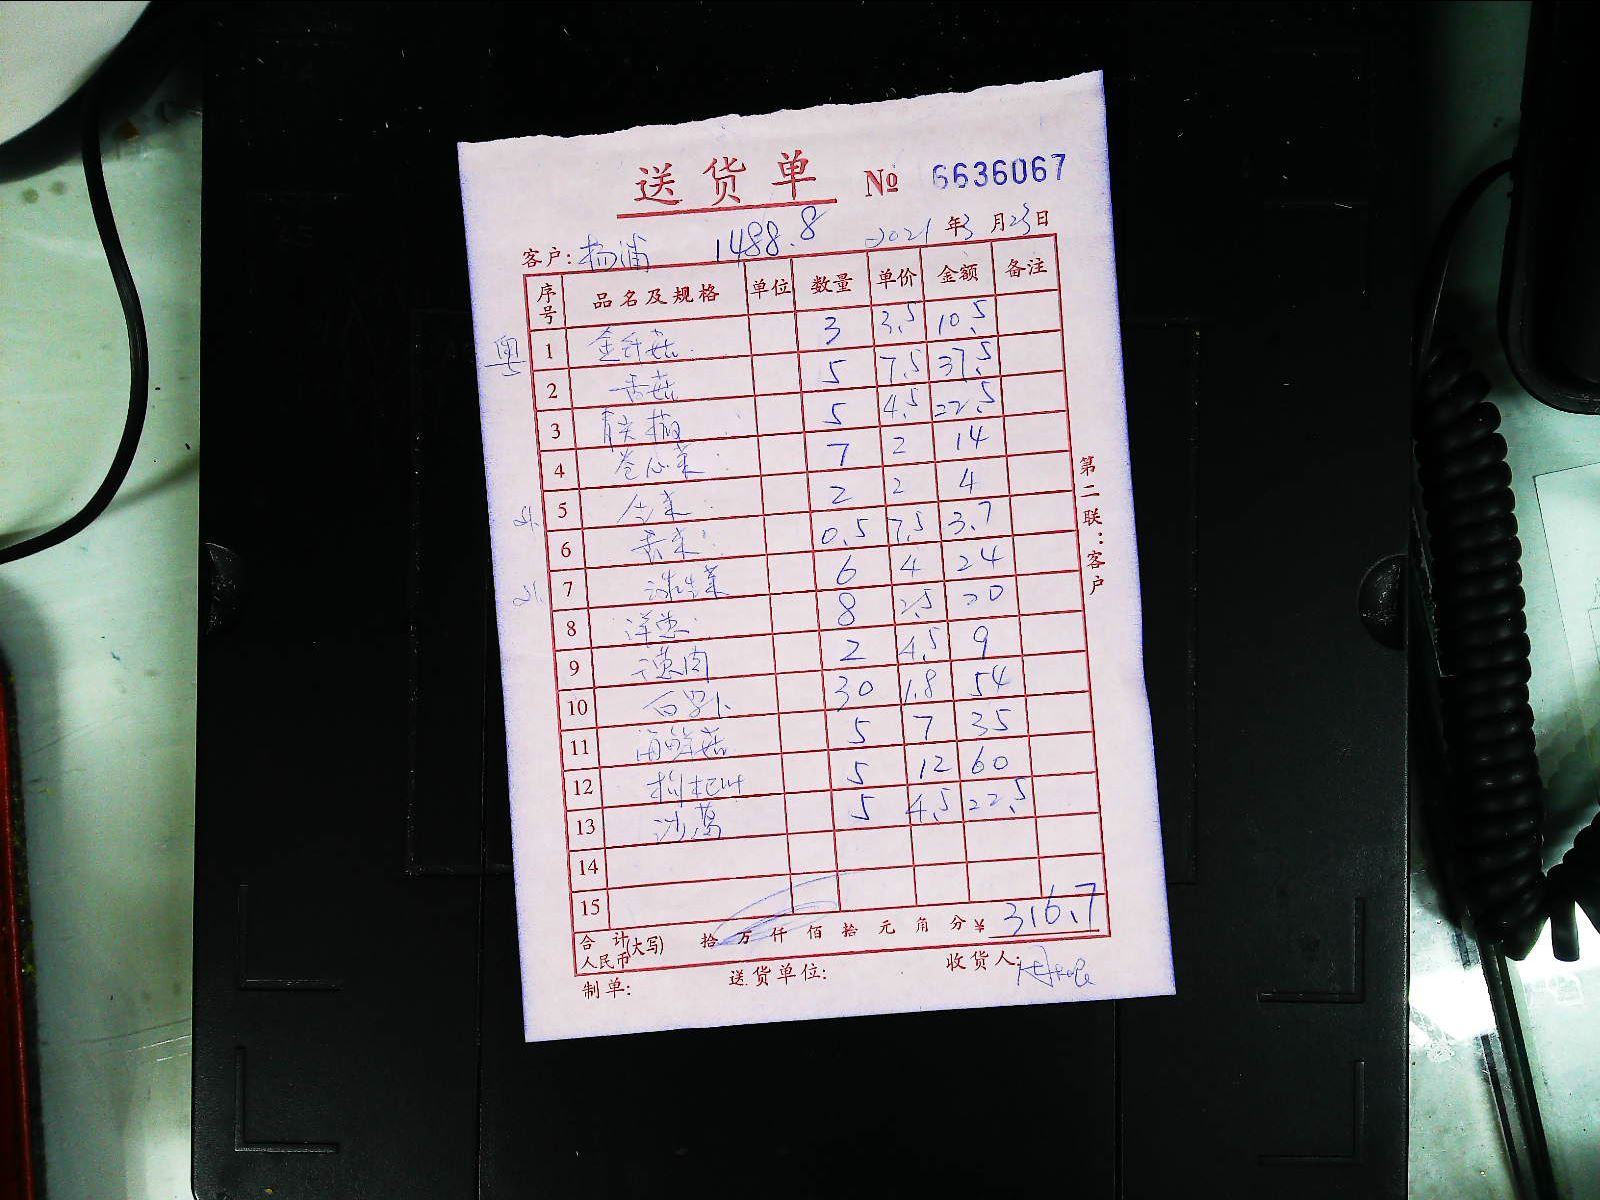 送货单 № 6636067
客户: 杨浦 1488.8 2021年3月23日
序号 品名及规格 单位 数量 单价 金额 备注
粤 1 金针菇 3 3.5 10.5
2 香菇 5 7.5 37.5
3 青尖椒 5 4.5 22.5
4 卷心菜 7 2 14
5 2 2 4
6 0.5 7.5 3.7
7 球生菜 6 4 24
8 洋葱 8 2.5 20
9 2 4.5 9
10 白萝卜 30 1.8 54
11 海鲜菇 5 7 35
12 枸杞叶 5 12 60
13 沙葛 5 4.5 22.5
14
15
合计人民币(大写) 拾 万 仟 佰 拾 元 角 分 ¥ 316.7
制单: 送货单位: 收货人:
第二联:客户